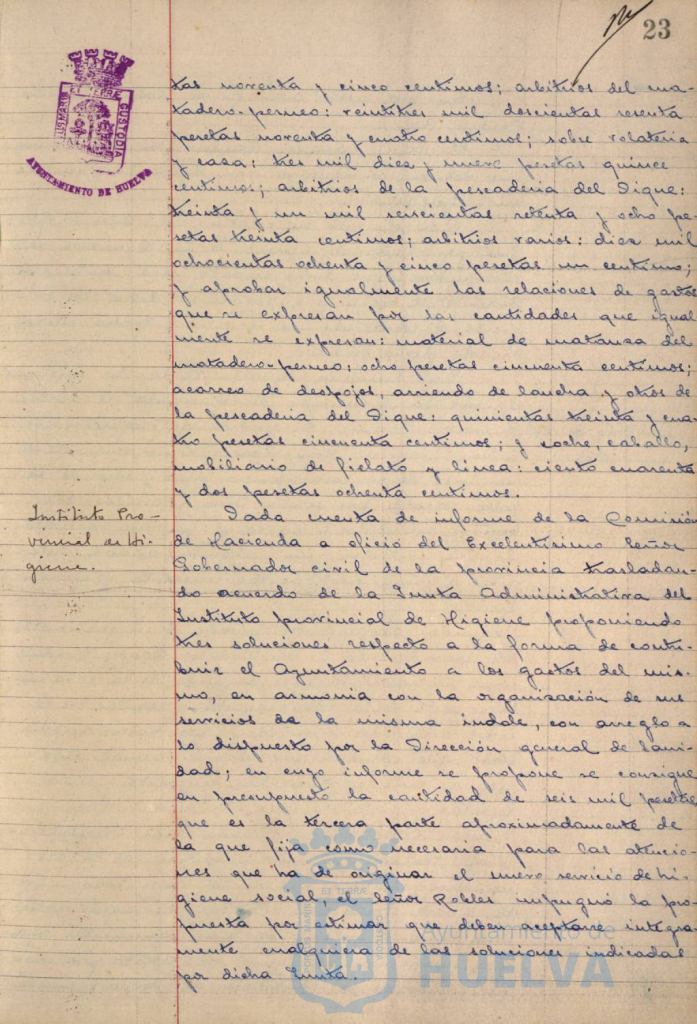 23
AYUNTAMIENTO DE HUELVA
CUSTODIA
tas noventa y cinco centimos; arbitrios del ma-
tadero-perneo: veintitres mil doscientas sesenta
pesetas noventa y cuatro centimos; sobre volateria
y casa: tres mil diez y nueve pesetas quince
centimos; arbitrios de la pescaderia del Dique:
treinta y un mil seiscientas setenta y ocho pe-
setas treinta centimos; arbitrios varios: diez mil
ochocientas ochenta y cinco pesetas un centimo;
y aprobar igualmente las relaciones de gastos
que se expresan por las cantidades que igual
mente se expresan: material de matanza del
matadero-perneo: ocho pesetas cincuenta centimos;
acarreo de despojos, arriendo de lancha y otros de
la pescaderia del Dique: quinientas treinta y cua-
tro pesetas cincuenta centimos; y coche, caballo,
mobiliario de fielato y linea: ciento cuarenta
y dos pesetas ochenta centimos.
Instituto Pro-
vincial de Hi-
giene.
Dada cuenta de informe de la Comisión
de Hacienda a oficio del Excelentisimo Señor
Gobernador civil de la provincia trasladan-
do acuerdo de la Junta Administrativa del
Instituto provincial de Higiene proponiendo
tres soluciones respecto a la forma de contri-
buir el Ayuntamiento a los gastos del mis-
mo, en armonia con la organización de sus
servicios de la misma indole, con arreglo a
lo dispuesto por la Dirección general de Sani-
dad; en cuyo informe se propone se consigne
en presupuesto la cantidad de seis mil pesetas
que es la tercera parte aproximadamente de
la que fija como necesaria para las atencio-
nes que ha de originar el nuevo servicio de hi-
giene social, el Señor Robles impugnó la pro-
puesta por estimar que deben aceptarse integra-
mente cualquiera de las soluciones indicadas
por dicha Junta.
Ayuntamiento de
HUELVA